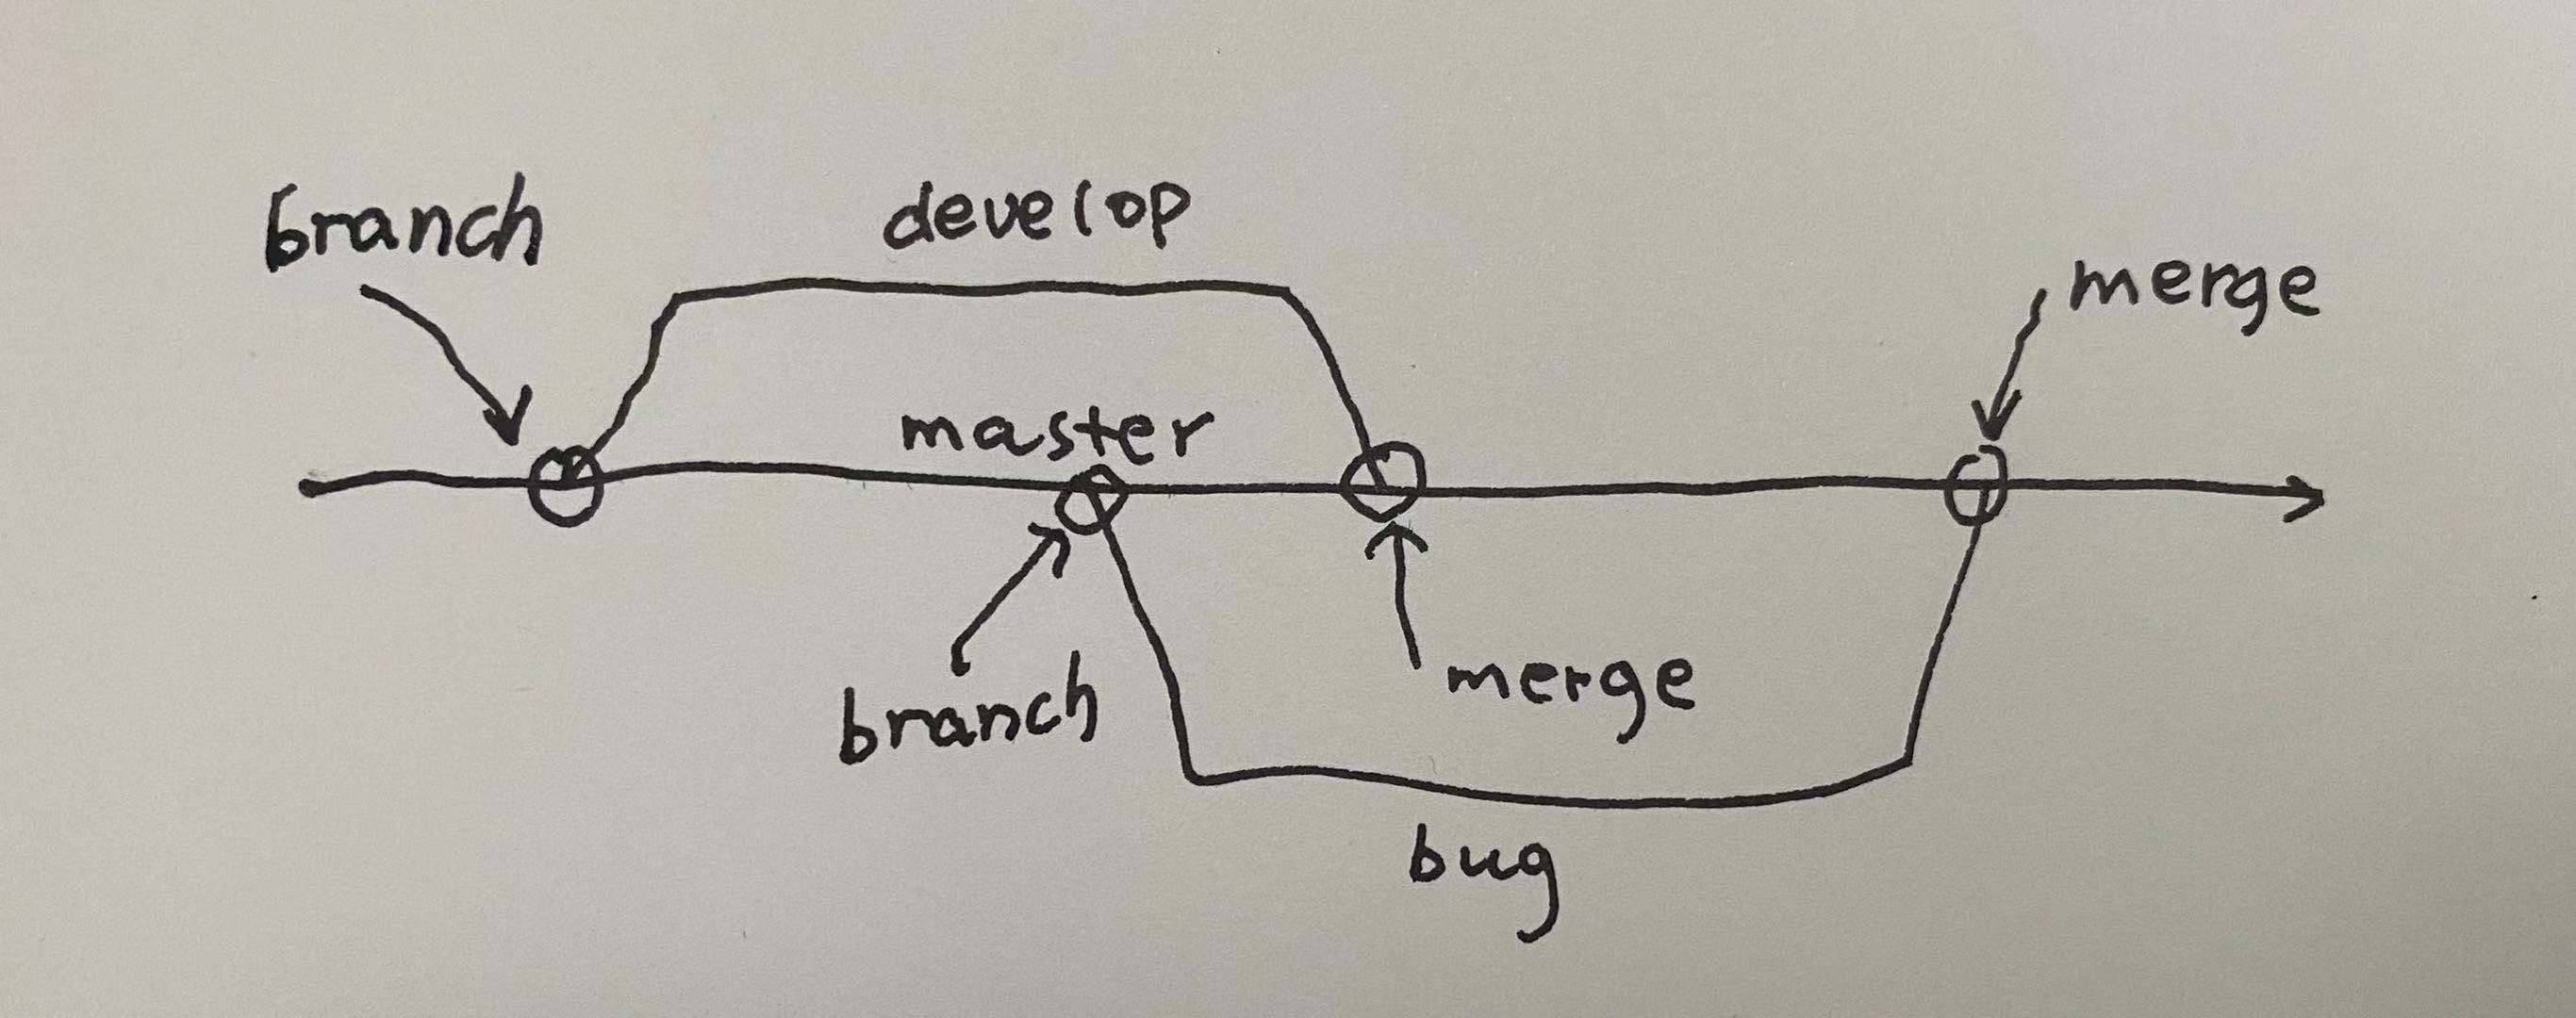 branch
develop
merge
master
branch
merge
bug